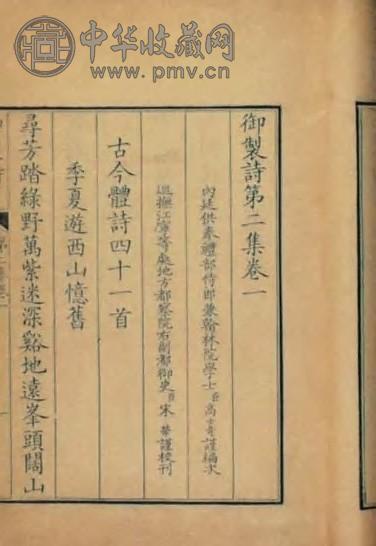 中华收藏网
www.pmv.cn
御製詩第二集卷一
內廷供奉禮部侍郎兼翰林院學士臣高士奇謹編次
巡撫江寧等處地方都察院右副都御史臣宋犖謹校刊
古今體詩四十一首
季夏遊西山憶舊
尋芳踏綠野萬紫迷深谿地遠峯頭闊山